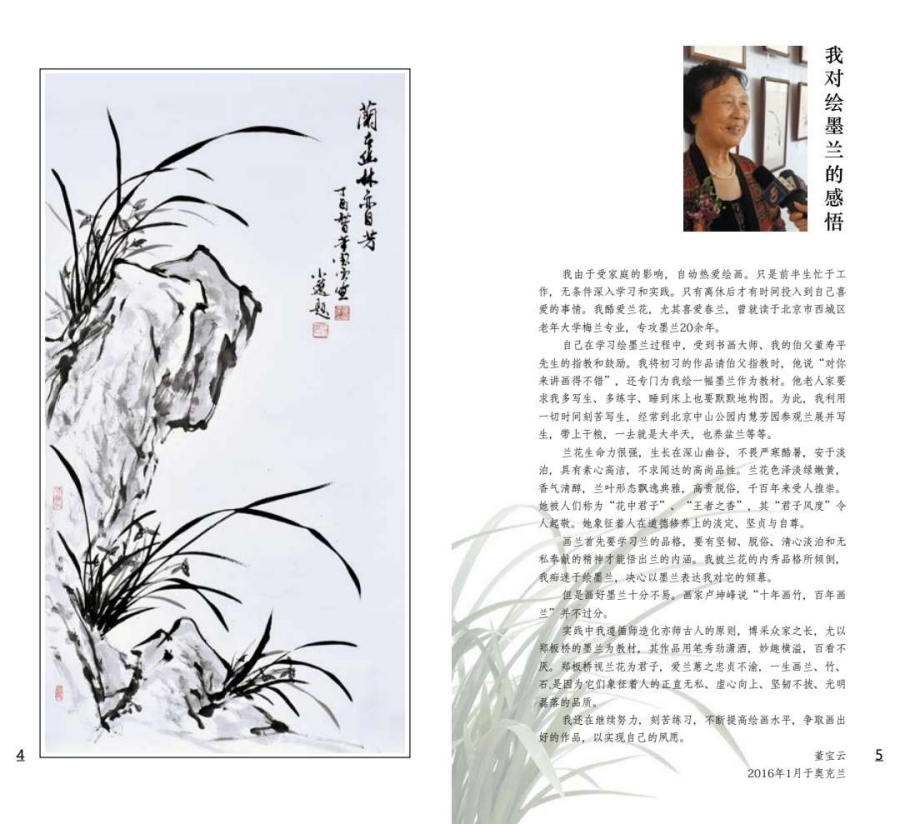 蘭蕙林香芳
4
我对绘墨兰的感悟
我由于受家庭的影响，自幼热爱绘画。只是前半生忙于工
作，无条件深入学习和实践。只有离休后才有时间投入到自己喜
爱的事情。我酷爱兰花，尤其喜爱春兰，曾就读于北京市西城区
老年大学梅兰专业，专攻墨兰20余年。
自己在学习绘墨兰过程中，受到书画大师、我的伯父董寿平
先生的指教和鼓励。我将初习的作品请伯父指教时，他说“对你
来讲画得不错”，还专门为我绘一幅墨兰作为教材。他老人家要
求我多写生、多练字、睡到床上也要默默地构图。为此，我利用
一切时间刻苦写生，经常到北京中山公园内慧芳园参观兰展并写
生，带上干粮，一去就是大半天，也养盆兰等等。
兰花生命力很强，生长在深山幽谷，不畏严寒酷暑，安于淡
泊，具有素心高洁，不求闻达的高尚品性。兰花色泽淡绿嫩黄，
香气清醇，兰叶形态飘逸典雅，高贵脱俗，千百年来受人推崇。
她被人们称为“花中君子”、“王者之香”，其“君子风度”令
人起敬。她象征着人在道德修养上的淡定、坚贞与自尊。
画兰首先要学习兰的品格，要有坚韧、脱俗、清心淡泊和无
私奉献的精神才能悟出兰的内涵。我被兰花的内秀品格所倾倒，
我痴迷于绘墨兰，决心以墨兰表达我对它的倾慕。
但是画好墨兰十分不易。画家卢坤峰说“十年画竹，百年画
兰”并不过分。
实践中我遵循师造化亦师古人的原则，博采众家之长，尤以
郑板桥的墨兰为教材，其作品用笔秀劲潇洒，妙趣横溢，百看不
厌。郑板桥视兰花为君子，爱兰蕙之忠贞不渝，一生画兰、竹、
石,是因为它们象征着人的正直无私、虚心向上、坚韧不拔、光明
磊落的品质。
我还在继续努力，刻苦练习，不断提高绘画水平，争取画出
好的作品，以实现自己的夙愿。
董宝云
2016年1月于奥克兰
5